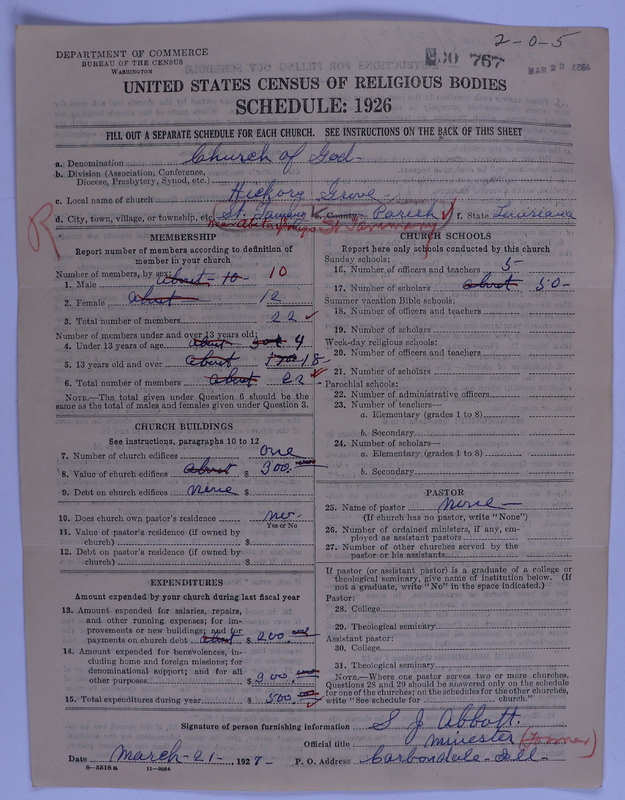 2-0-5
DEPARTMENT OF COMMERCE
BUREAU OF THE CENSUS
WASHINGTON
767
UNITED STATES CENSUS OF RELIGIOUS BODIES
SCHEDULE: 1926
FILL OUT A SEPARATE SCHEDULE FOR EACH CHURCH. SEE INSTRUCTIONS ON THE BACK OF THIS SHEET
a. Denomination Church of God-
b. Division (Association, Conference,
Diocese, Presbytery, Synod, etc.)
c. Local name of church Hickory Grove
d. City, town, village, or township, etc. St. Tammany e. County Parish f. State Louisiana
R
St Tammany
MEMBERSHIP
Report number of members according to definition of
member in your church
Number of members, by sex:
1. Male about 10 10
2. Female about 12
3. Total number of members 22
Number of members under and over 13 years old:
4. Under 13 years of age about 4
5. 13 years old and over about 18
6. Total number of members about 22
NOTE.—The total given under Question 6 should be the
same as the total of males and females given under Question 3.
CHURCH BUILDINGS
See instructions, paragraphs 10 to 12
7. Number of church edifices one
8. Value of church edifices about $ 300.
9. Debt on church edifices none $
10. Does church own pastor's residence no-
Yes or No
11. Value of pastor's residence (if owned by
church) $
12. Debt on pastor's residence (if owned by
church) $
EXPENDITURES
Amount expended by your church during last fiscal year
13. Amount expended for salaries, repairs,
and other running expenses; for im-
provements or new buildings; and for
payments on church debt about $ 200.
14. Amount expended for benevolences, in-
cluding home and foreign missions; for
denominational support; and for all
other purposes $ 300.
15. Total expenditures during year $ 500.
CHURCH SCHOOLS
Report here only schools conducted by this church
Sunday schools:
16. Number of officers and teachers 5-
17. Number of scholars about 50-
Summer vacation Bible schools:
18. Number of officers and teachers
19. Number of scholars
Week-day religious schools:
20. Number of officers and teachers
21. Number of scholars
Parochial schools:
22. Number of administrative officers
23. Number of teachers—
a. Elementary (grades 1 to 8)
b. Secondary
24. Number of scholars—
a. Elementary (grades 1 to 8)
b. Secondary
PASTOR
25. Name of pastor none-
(If church has no pastor, write "None")
26. Number of ordained ministers, if any, em-
ployed as assistant pastors
27. Number of other churches served by the
pastor or his assistants
If pastor (or assistant pastor) is a graduate of a college or
theological seminary, give name of institution below. (If
not a graduate, write "No" in the space indicated.)
Pastor:
28. College
29. Theological seminary
Assistant pastor:
30. College
31. Theological seminary
NOTE.—Where one pastor serves two or more churches,
Questions 28 and 29 should be answered only on the schedule
for one of the churches; on the schedules for the other churches,
write "See schedule for church."
Signature of person furnishing information S J Abbott.
Official title Minister (Former)
Date March-21-, 1927- P. O. Address Carbondale-Ill-
8-5518 a 11-9024